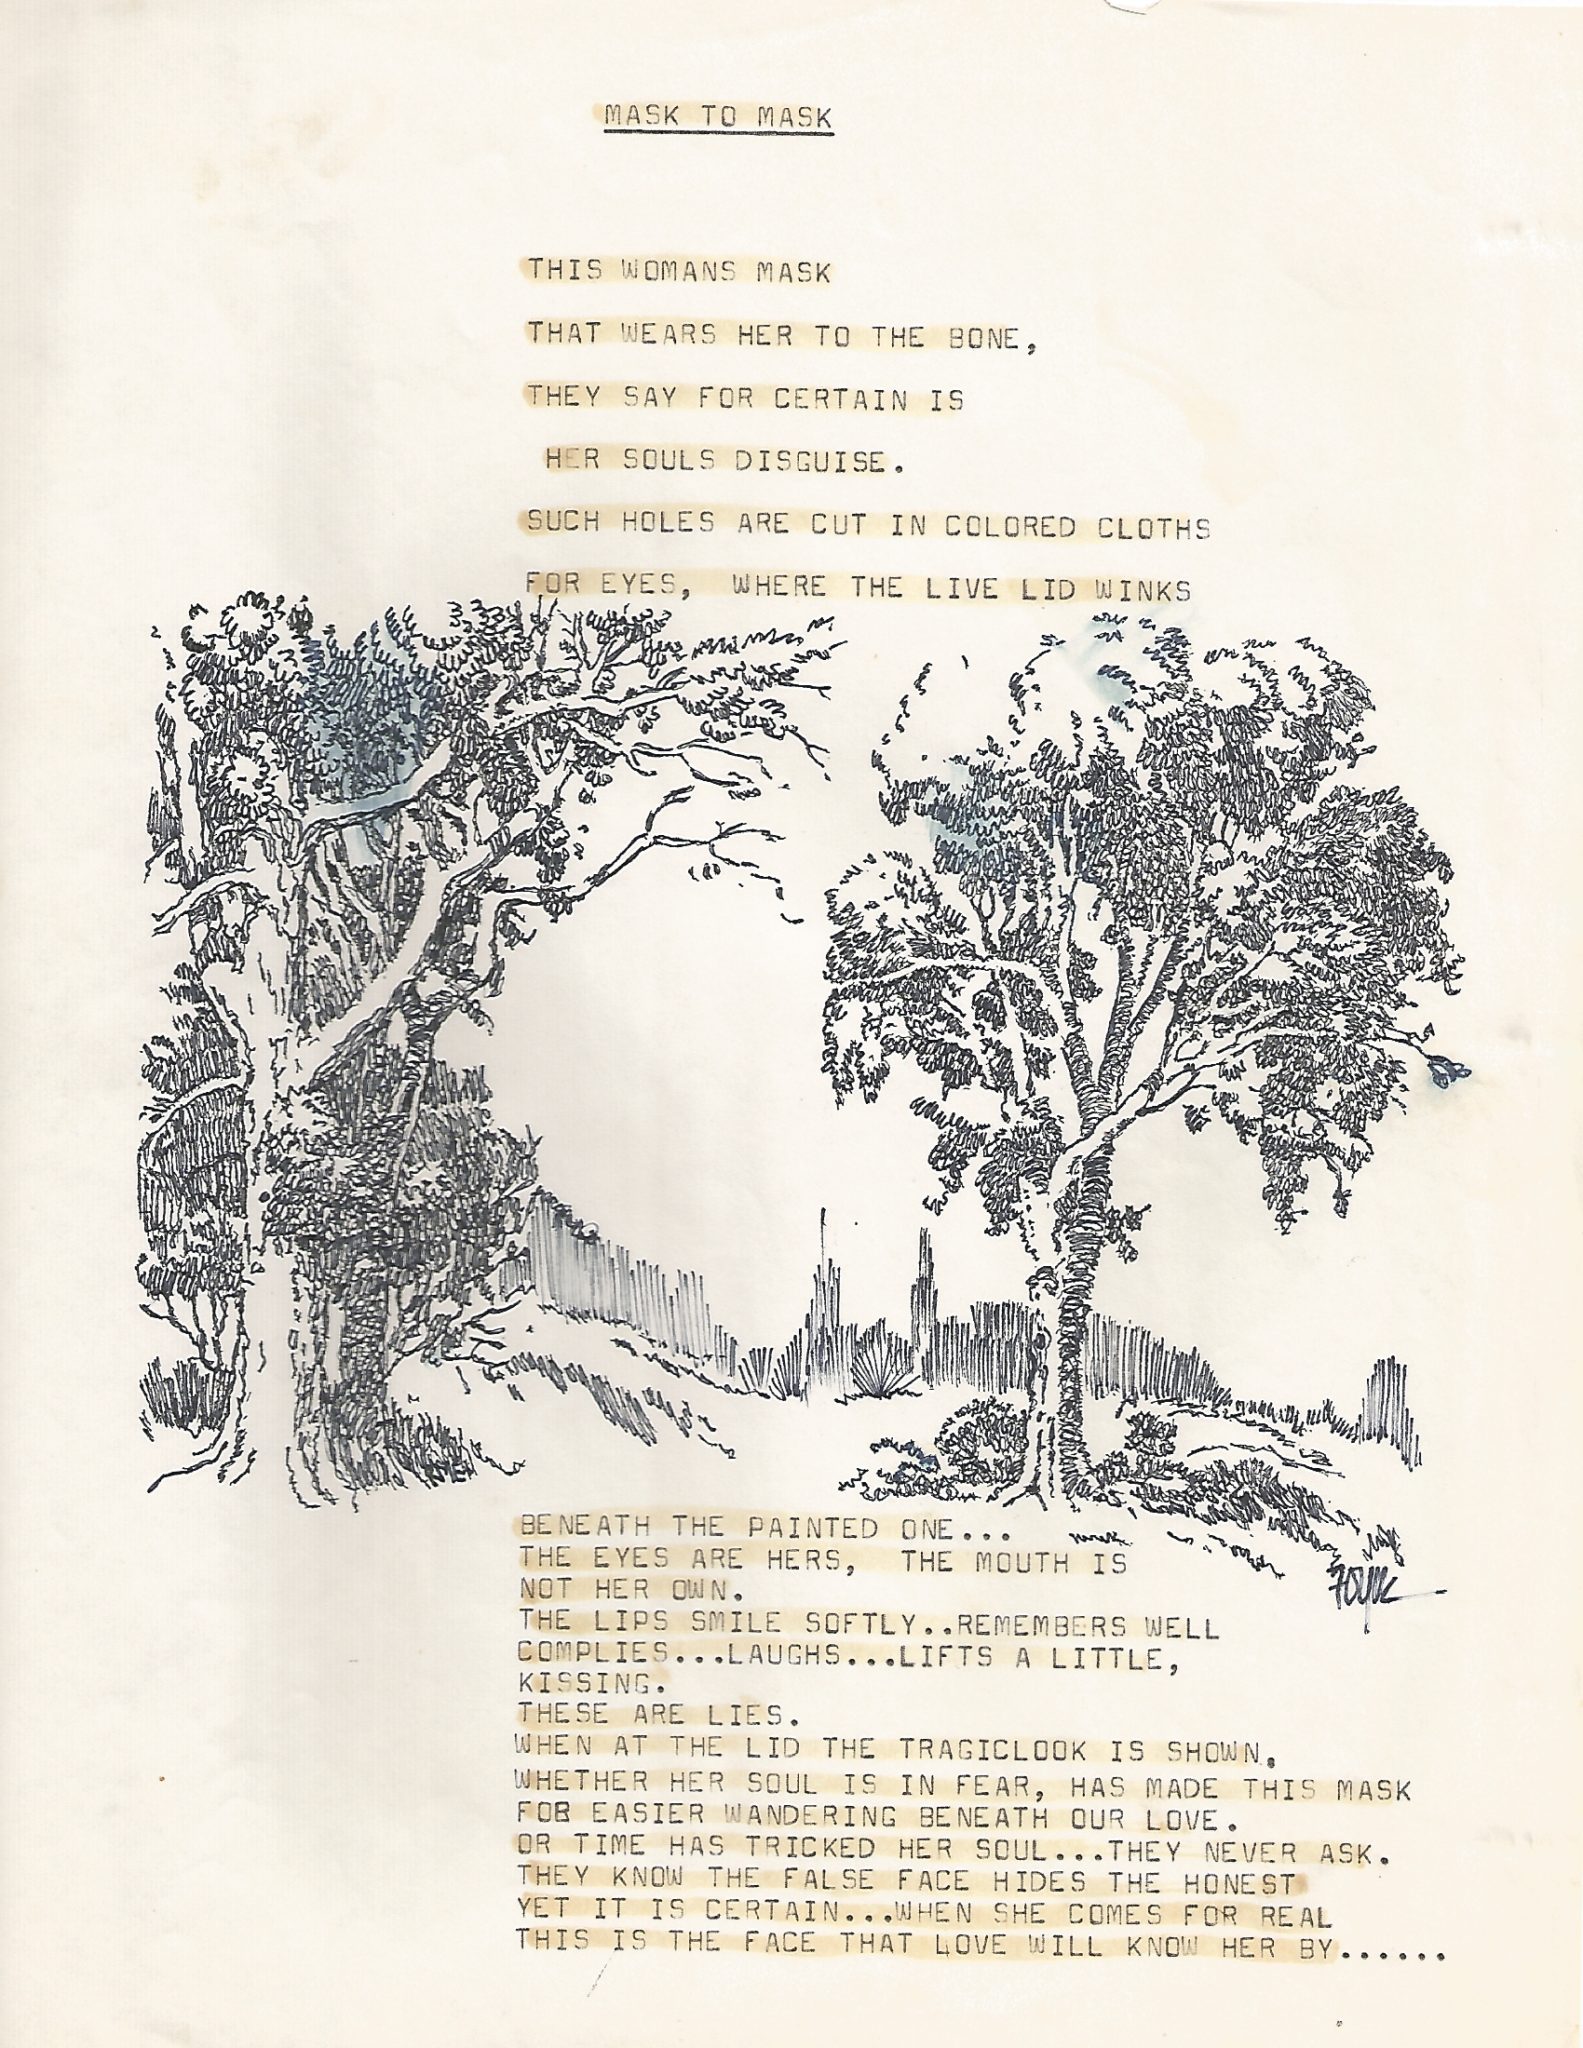 MASK TO MASK
THIS WOMANS MASK
THAT WEARS HER TO THE BONE,
THEY SAY FOR CERTAIN IS
HER SOULS DISGUISE.
SUCH HOLES ARE CUT IN COLORED CLOTHS
FOR EYES, WHERE THE LIVE LID WINKS
BENEATH THE PAINTED ONE...
THE EYES ARE HERS, THE MOUTH IS
NOT HER OWN.
THE LIPS SMILE SOFTLY..REMEMBERS WELL
COMPLIES...LAUGHS...LIFTS A LITTLE,
KISSING.
THESE ARE LIES.
WHEN AT THE LID THE TRAGICLOOK IS SHOWN.
WHETHER HER SOUL IS IN FEAR, HAS MADE THIS MASK
FOR EASIER WANDERING BENEATH OUR LOVE.
OR TIME HAS TRICKED HER SOUL...THEY NEVER ASK.
THEY KNOW THE FALSE FACE HIDES THE HONEST
YET IT IS CERTAIN...WHEN SHE COMES FOR REAL
THIS IS THE FACE THAT LOVE WILL KNOW HER BY......